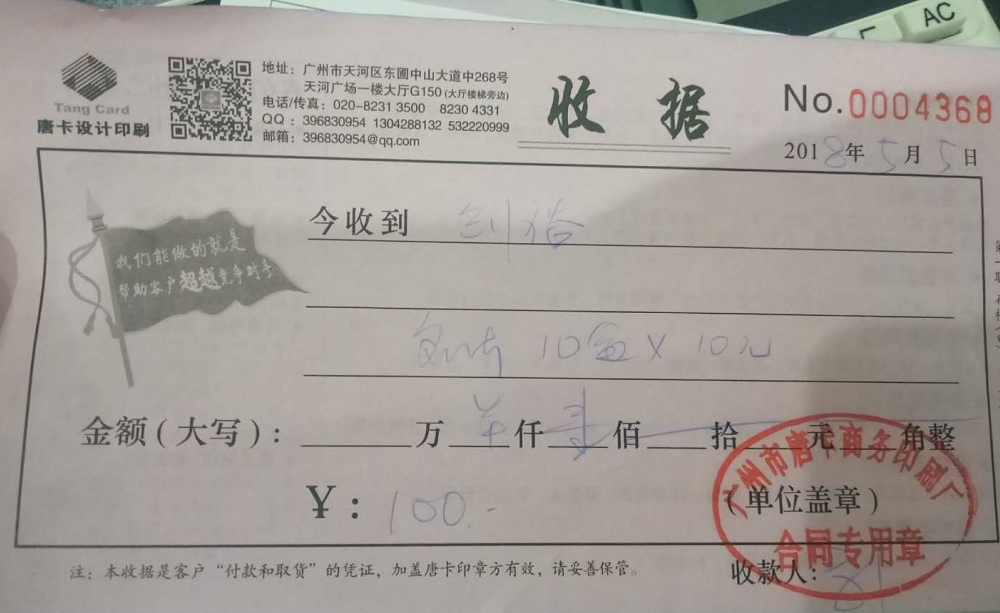 Tang Card
唐卡设计印刷
地址：广州市天河区东圃中山大道中268号
天河广场一楼大厅G150(大厅楼梯旁边)
电话/传真：020-8231 3500 8230 4331
QQ：396830954 1304288132 532220999
邮箱：396830954@qq.com
收据
No.0004368
2018年5月5日
我们能做的就是
帮助客户超越竞争对手
今收到
10盒×10元
金额(大写)：万仟壹佰拾元角整
¥：100.-
(单位盖章)
广州市唐卡商务印刷厂
合同专用章
注：本收据是客户“付款和取货”的凭证，加盖唐卡印章方有效，请妥善保管。
收款人：
AC